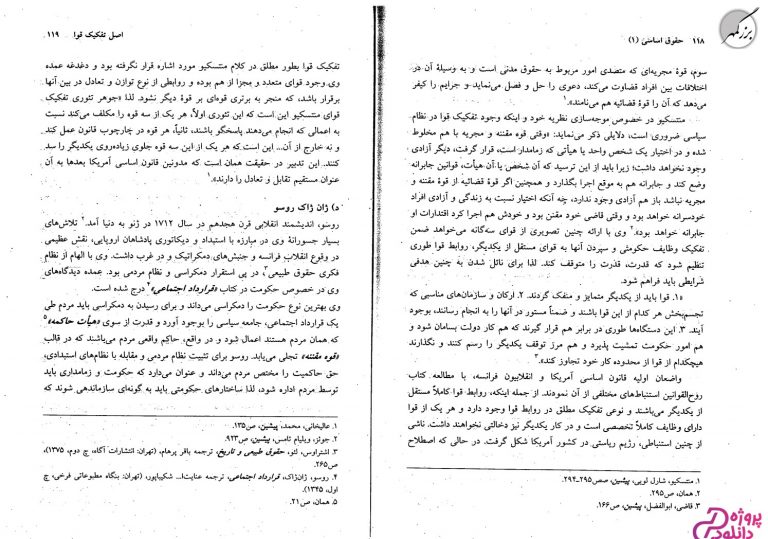 ۱۱۸ حقوق اساسی (۱)
سوم، قوهٔ مجریه‌ای که متصدی امور مربوط به حقوق مدنی است و به وسیلهٔ آن در
اختلافات بین افراد قضاوت می‌کند، دعوی را حل و فصل می‌نماید و جرایم را کیفر
می‌دهد که آن را قوهٔ قضائیه هم می‌نامند».۱
منتسکیو در خصوص موجه‌سازی نظریه خود و اینکه وجود تفکیک قوا در نظام
سیاسی ضروری است، دلایلی ذکر می‌نماید: «وقتی قوه مقننه و مجریه با هم مخلوط
شده و در اختیار یک شخص واحد یا هیأتی که زمامدار است، قرار گرفت، دیگر آزادی
وجود نخواهد داشت؛ زیرا باید از این ترسید که آن شخص یا آن هیأت، قوانین جابرانه
وضع کند و جابرانه هم به موقع اجرا بگذارد و همچنین اگر قوهٔ قضائیه از قوهٔ مقننه و
مجریه نباشد باز هم آزادی وجود ندارد، چه آنکه اختیار نسبت به زندگی و آزادی افراد
خودسرانه خواهد بود و وقتی قاضی خود مقنن بود و خودش هم اجرا کرد اقتدارات او
جابرانه خواهد بود».۲ وی با ارائه چنین تصویری از قوای سه‌گانه می‌خواهد ضمن
تفکیک وظایف حکومتی و سپردن آنها به قوای مستقل از یکدیگر، روابط قوا طوری
تنظیم شود که قدرت، قدرت را متوقف کند. لذا برای نائل شدن به چنین هدفی
شرایطی باید فراهم شود.
«۱. قوا باید از یکدیگر متمایز و منفک گردند. ۲. ارکان و سازمان‌های مناسبی که
تجسم‌بخش هر کدام از این قوا باشند و ضمناً مستور در آنها را به انجام رسانند، بوجود
آیند. ۳. این دستگاه‌ها طوری در برابر هم قرار گیرند که هم کار دولت بسامان شود و
هم امور حکومت تمشیت پذیرد و هم مرز توقف یکدیگر را رسم کنند و نگذارند
هیچکدام از قوا از محدوده کار خود تجاوز کند».۳
واضعان اولیه قانون اساسی آمریکا و انقلابیون فرانسه، با مطالعه کتاب
روح‌القوانین استنباط‌های مختلفی از آن نمودند. از جمله اینکه، روابط قوا کاملاً مستقل
از یکدیگر می‌باشند و نوعی تفکیک مطلق در روابط قوا وجود دارد و هر یک از قوا
دارای وظایف کاملاً تخصصی است و در کار یکدیگر نیز دخالتی نخواهند داشت. ناشی
از چنین استنباطی، رژیم ریاستی در کشور آمریکا شکل گرفت. در حالی که اصطلاح
۱. منتسکیو، شارل لویی، پیشین، صص۲۹۵-۲۹۴.
۲. همان، ص۲۹۵.
۳. قاضی، ابوالفضل، پیشین، ص۱۶۶.
اصل تفکیک قوا ۱۱۹
تفکیک قوا بطور مطلق در کلام منتسکیو مورد اشاره قرار نگرفته بود و دغدغه عمده
وی وجود قوای متعدد و مجزا از هم بوده و روابطی از نوع توازن و تعادل در بین آنها
برقرار باشد، که منجر به برتری قوه‌ای بر قوهٔ دیگر نشود. لذا «جوهر تئوری تفکیک
قوای منتسکیو این است که این تئوری اولاً، هر یک از سه قوه را مکلف می‌کند نسبت
به اعمالی که انجام می‌دهند پاسخگو باشند، ثانیاً، هر قوه در چارچوب قانون عمل کند
و نه خارج از آن... این است که هر یک از این سه قوه جلوی زیاده‌روی یکدیگر را سد
کنند. این تدبیر در حقیقت همان است که مدونین قانون اساسی آمریکا بعدها به آن
عنوان مستقیم تقابل و تعادل را دارند».۱
د) ژان ژاک روسو
روسو، اندیشمند انقلابی قرن هجدهم در سال ۱۷۱۲ در ژنو به دنیا آمد.۲ تلاش‌های
بسیار جسورانهٔ وی در مبارزه با استبداد و دیکتاتوری پادشاهان اروپایی، نقش عظیمی
در وقوع انقلاب فرانسه و جنبش‌های دمکراتیک و در غرب داشت. وی با الهام از نظام
فکری حقوق طبیعی۳، در پی استقرار دمکراسی و نظام مردمی بود. عمده دیدگاه‌های
وی در خصوص حکومت در کتاب «قرارداد اجتماعی»۴ درج شده است.
وی بهترین نوع حکومت را دمکراسی می‌داند و برای رسیدن به دمکراسی باید مردم طی
یک قرارداد اجتماعی، جامعه سیاسی را بوجود آورد و قدرت از سوی «هیأت حاکمه»۵
که همان مردم هستند اعمال شود و در واقع، حاکم واقعی مردم می‌باشند که در قالب
«قوه مقننه» تجلی می‌یابد. روسو برای تثبیت نظام مردمی و مقابله با نظام‌های استبدادی،
حق حاکمیت را مختص مردم می‌داند و عنوان می‌دارد که حکومت و زمامداری باید
توسط مردم اداره شود، لذا ساختارهای حکومتی باید به گونه‌ای سازماندهی شوند که
۱. عالیخانی، محمد، پیشین، ص۱۳۵.
۲. جونز، ویلیام تامس، پیشین، ص۹۲۳.
۳. اشتراوس، لئو، حقوق طبیعی و تاریخ، ترجمه باقر پرهام، (تهران: انتشارات آگاه، چ دوم، ۱۳۷۵)،
ص۲۶۵.
۴. روسو، ژان‌ژاک، قرارداد اجتماعی، ترجمه عنایت‌ا... شکیباپور، (تهران: بنگاه مطبوعاتی فرخی، چ
اول، ۱۳۴۵).
۵. همان، ص۲۱.
بزرگمهر
پروژه
دانلود